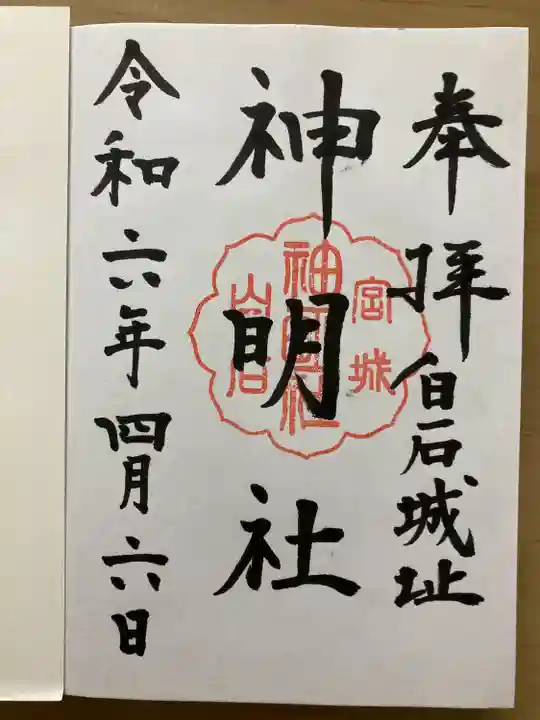 奉拝 白石城址
神明社
宮城
神明社
白石
令和六年四月六日